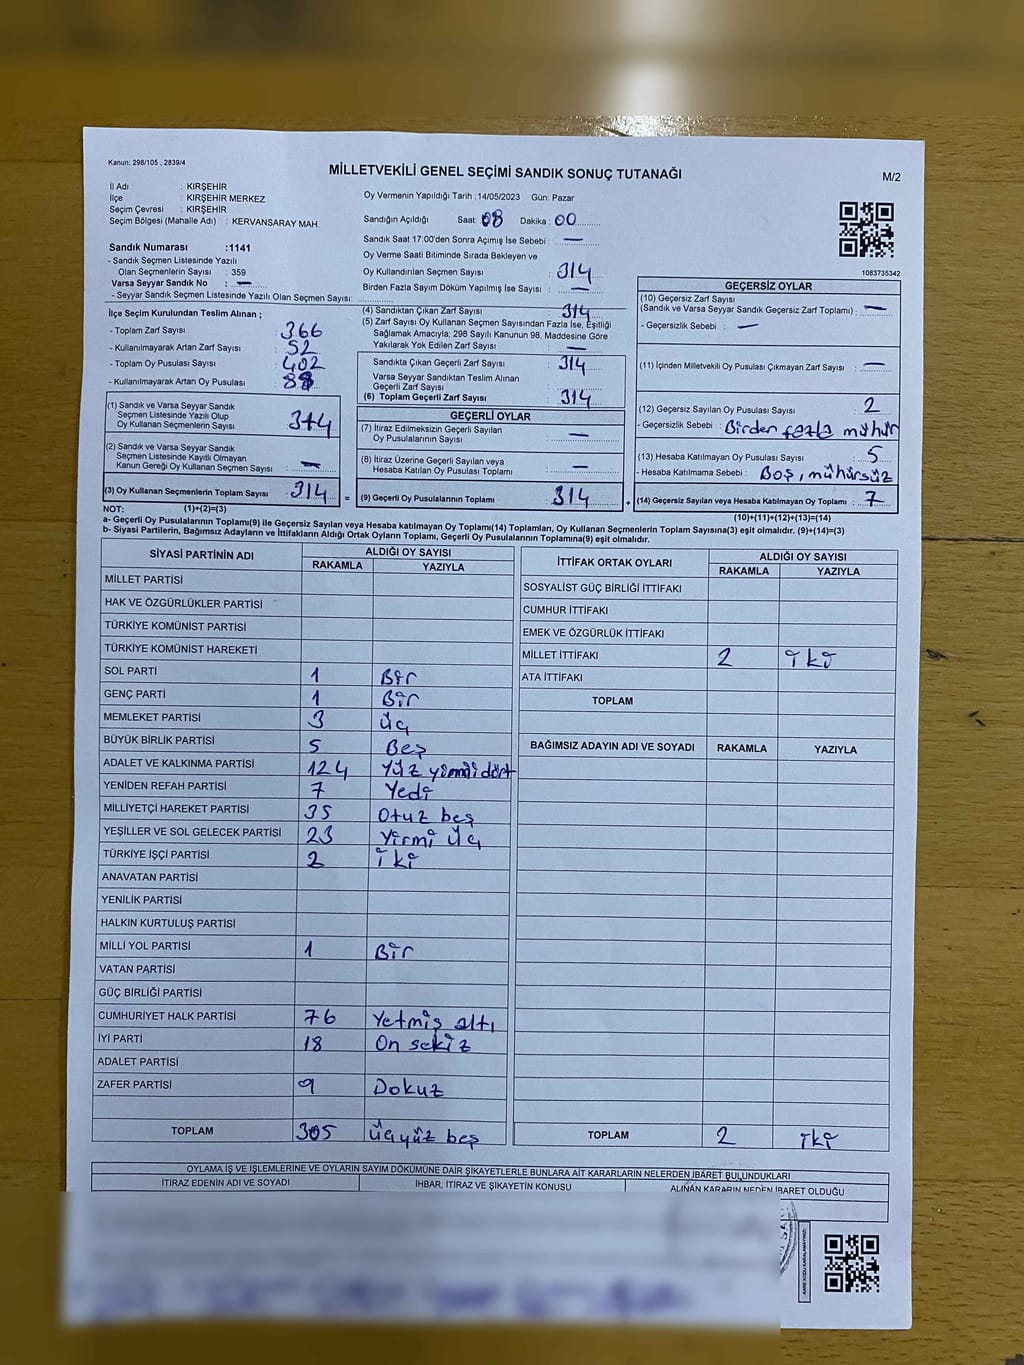 Kanun: 298/105 , 2839/4
MİLLETVEKİLİ GENEL SEÇİMİ SANDIK SONUÇ TUTANAĞI
M/2
İl Adı : KIRŞEHİR
İlçe : KIRŞEHİR MERKEZ
Seçim Çevresi : KIRŞEHİR
Seçim Bölgesi (Mahalle Adı) : KERVANSARAY MAH.
Oy Vermenin Yapıldığı Tarih : 14/05/2023 Gün: Pazar
Sandığın Açıldığı Saat: 08 Dakika : 00
Sandık Saat 17:00'den Sonra Açımış İse Sebebi : —
Sandık Numarası :1141
- Sandık Seçmen Listesinde Yazılı
Olan Seçmenlerin Sayısı : 359
Varsa Seyyar Sandık No : —
- Seyyar Sandık Seçmen Listesinde Yazılı Olan Seçmen Sayısı:
Oy Verme Saati Bitiminde Sırada Bekleyen ve
Oy Kullandırılan Seçmen Sayısı : 314
Birden Fazla Sayım Döküm Yapılmış İse Sayısı : —
1083735342
İlçe Seçim Kurulundan Teslim Alınan ;
- Toplam Zarf Sayısı : 366
- Kullanılmayarak Artan Zarf Sayısı : 52
- Toplam Oy Pusulası Sayısı : 402
- Kullanılmayarak Artan Oy Pusulası : 88
(1) Sandık ve Varsa Seyyar Sandık
Seçmen Listesinde Yazılı Olup
Oy Kullanan Seçmenlerin Sayısı : 314
(2) Sandık ve Varsa Seyyar Sandık
Seçmen Listesinde Kayıtlı Olmayan
Kanun Gereği Oy Kullanan Seçmen Sayısı : —
(3) Oy Kullanan Seçmenlerin Toplam Sayısı : 314 =
(4) Sandıktan Çıkan Zarf Sayısı : 314
(5) Zarf Sayısı Oy Kullanan Seçmen Sayısından Fazla İse, Eşitliği
Sağlamak Amacıyla; 298 Sayılı Kanunun 98. Maddesine Göre
Yakılarak Yok Edilen Zarf Sayısı : —
Sandıkta Çıkan Geçerli Zarf Sayısı : 314
Varsa Seyyar Sandıktan Teslim Alınan
Geçerli Zarf Sayısı :
(6) Toplam Geçerli Zarf Sayısı : 314
GEÇERLİ OYLAR
(7) İtiraz Edilmeksizin Geçerli Sayılan
Oy Pusulalarının Sayısı : —
(8) İtiraz Üzerine Geçerli Sayılan veya
Hesaba Katılan Oy Pusulası Toplamı : —
(9) Geçerli Oy Pusulalarının Toplamı : 314 +
GEÇERSİZ OYLAR
(10) Geçersiz Zarf Sayısı
(Sandık ve Varsa Seyyar Sandık Geçersiz Zarf Toplamı) : —
- Geçersizlik Sebebi : —
(11) İçinden Milletvekili Oy Pusulası Çıkmayan Zarf Sayısı : —
(12) Geçersiz Sayılan Oy Pusulası Sayısı : 2
- Geçersizlik Sebebi : Birden fazla mühür
(13) Hesaba Katılmayan Oy Pusulası Sayısı : 5
- Hesaba Katılmama Sebebi : Boş, mühürsüz
(14) Geçersiz Sayılan veya Hesaba Katılmayan Oy Toplamı : 7
NOT: (1)+(2)=(3)
(10)+(11)+(12)+(13)=(14)
a- Geçerli Oy Pusulalarının Toplamı(9) ile Geçersiz Sayılan veya Hesaba katılmayan Oy Toplamı(14) Toplamları, Oy Kullanan Seçmenlerin Toplam Sayısına(3) eşit olmalıdır. (9)+(14)=(3)
b- Siyasi Partilerin, Bağımsız Adayların ve İttifakların Aldığı Ortak Oyların Toplamı, Geçerli Oy Pusulalarının Toplamına(9) eşit olmalıdır.
SİYASİ PARTİNİN ADI ALDIĞI OY SAYISI
RAKAMLA YAZIYLA
MİLLET PARTİSİ
HAK VE ÖZGÜRLÜKLER PARTİSİ
TÜRKİYE KOMÜNİST PARTİSİ
TÜRKİYE KOMÜNİST HAREKETİ
SOL PARTİ 1 Bir
GENÇ PARTİ 1 Bir
MEMLEKET PARTİSİ 3 üç
BÜYÜK BİRLİK PARTİSİ 5 Beş
ADALET VE KALKINMA PARTİSİ 124 Yüz yirmi dört
YENİDEN REFAH PARTİSİ 7 Yedi
MİLLİYETÇİ HAREKET PARTİSİ 35 Otuz beş
YEŞİLLER VE SOL GELECEK PARTİSİ 23 Yirmi üç
TÜRKİYE İŞÇİ PARTİSİ 2 iki
ANAVATAN PARTİSİ
YENİLİK PARTİSİ
HALKIN KURTULUŞ PARTİSİ
MİLLİ YOL PARTİSİ 1 Bir
VATAN PARTİSİ
GÜÇ BİRLİĞİ PARTİSİ
CUMHURİYET HALK PARTİSİ 76 Yetmiş altı
İYİ PARTİ 18 On sekiz
ADALET PARTİSİ
ZAFER PARTİSİ 9 Dokuz
TOPLAM 305 üçyüz beş
İTTİFAK ORTAK OYLARI ALDIĞI OY SAYISI
RAKAMLA YAZIYLA
SOSYALİST GÜÇ BİRLİĞİ İTTİFAKI
CUMHUR İTTİFAKI
EMEK VE ÖZGÜRLÜK İTTİFAKI
MİLLET İTTİFAKI 2 iki
ATA İTTİFAKI
TOPLAM
BAĞIMSIZ ADAYIN ADI VE SOYADI RAKAMLA YAZIYLA
TOPLAM 2 iki
OYLAMA İŞ VE İŞLEMLERİNE VE OYLARIN SAYIM DÖKÜMÜNE DAİR ŞİKAYETLERLE BUNLARA AİT KARARLARIN NELERDEN İBARET BULUNDUKLARI
İTİRAZ EDENİN ADI VE SOYADI İHBAR, İTİRAZ VE ŞİKAYETİN KONUSU ALINAN KARARIN NEDEN İBARET OLDUĞU
KARE KODU KARALAMAYINIZ!